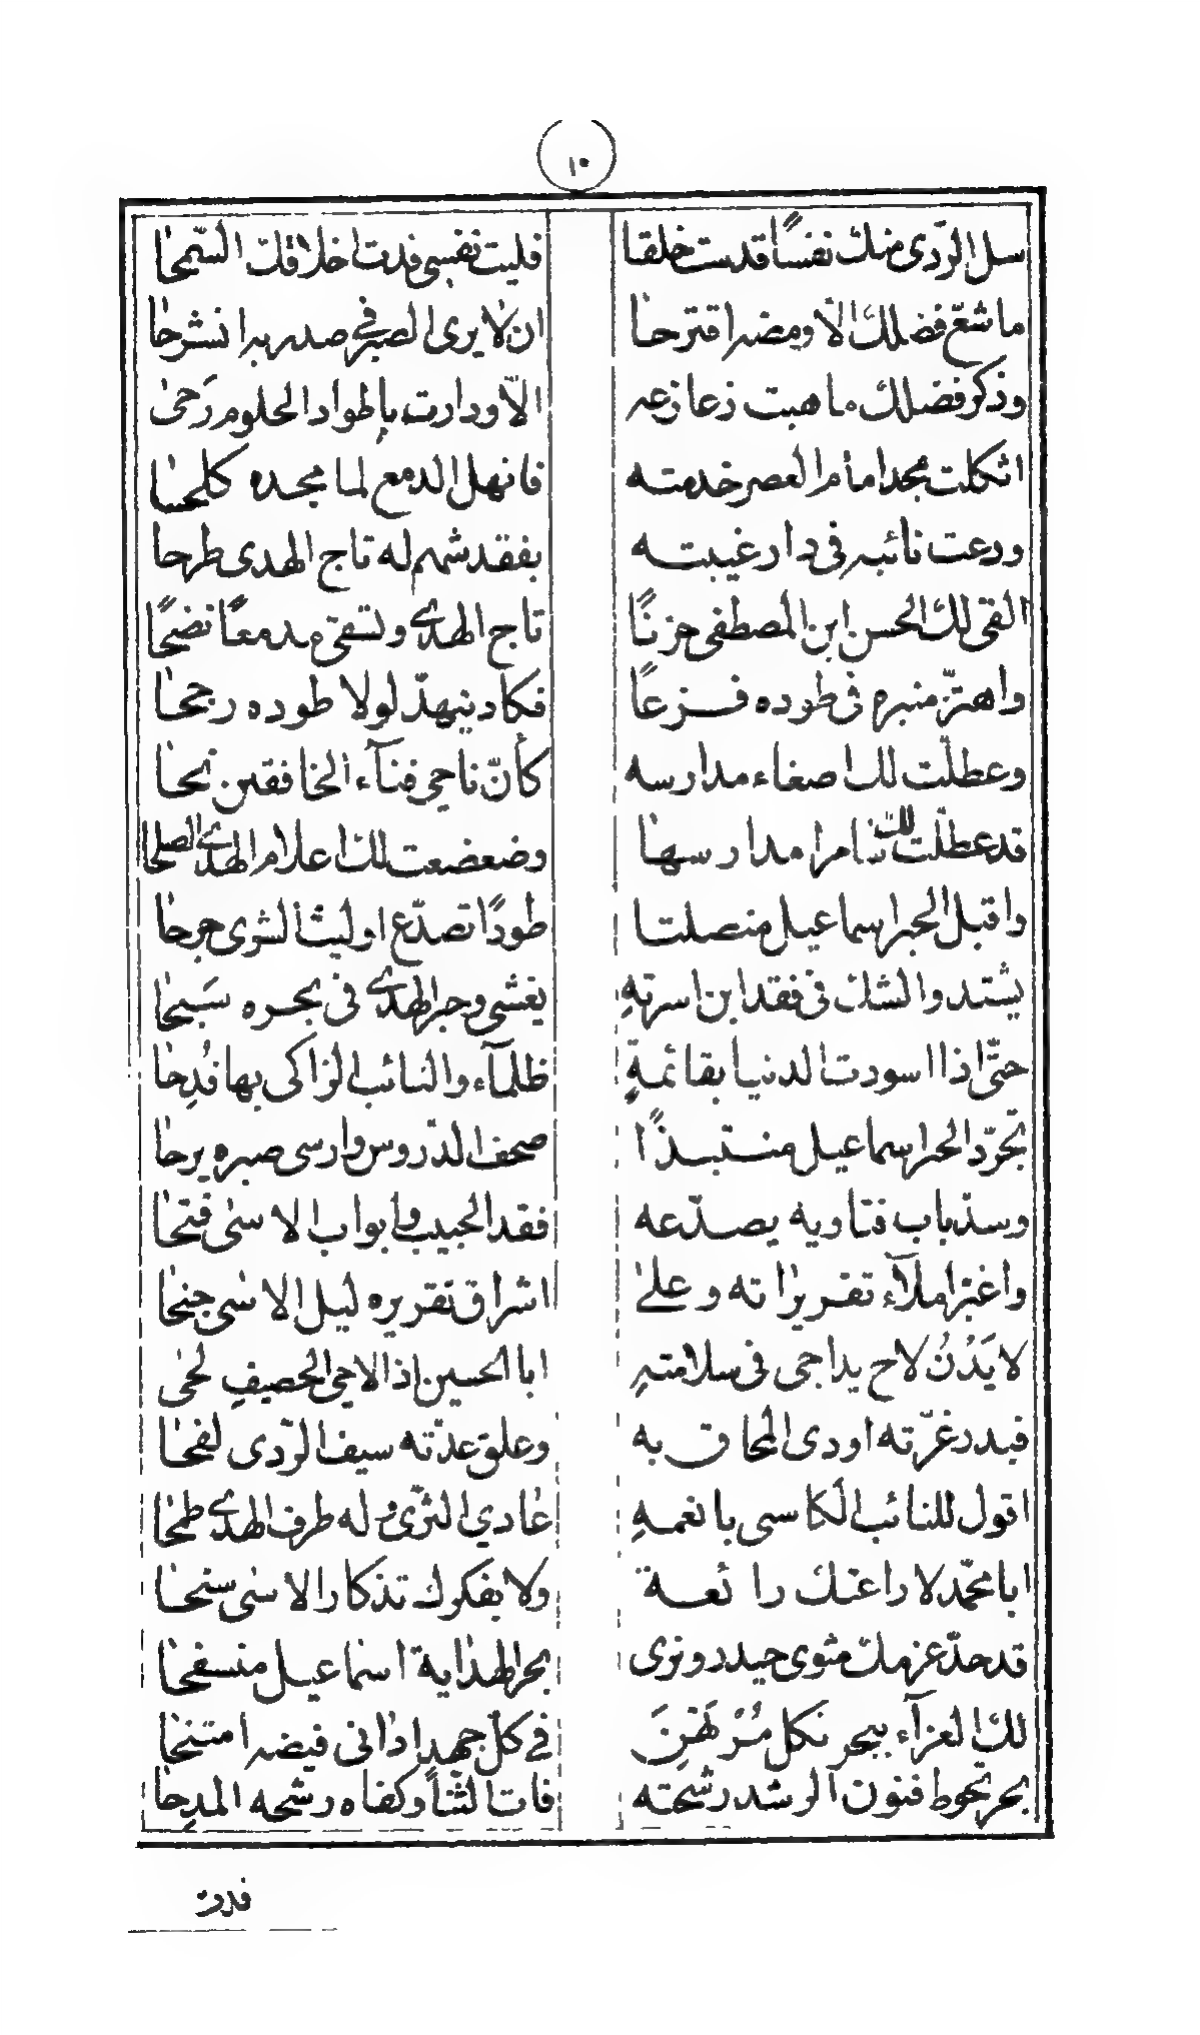 ١٠
سل الرّدى منك نفسًا قدست خلقا فليت نفسي فدت اخلاقك السّمحا
ما شعّ فضلك الّا ومضه اقترحا ان لا يرى الصبر في صدر به انشرحا
وذكر فضلك ما هبت زعازعه الّا ودارت باطواد الحلوم رَحىٰ
اثكلت مجدا مأم العصر خدمته فانهل الدمع لما مجده كلحا
ورعت نائبه في دار غيبته بفقد شهم له تاج الهدى طرحا
القى لك الحسن ابن المصطفى حزنًا تاج الهدى وتسقى مدمعًا نضحًا
واهتزّ منبره في طوده فزعًا فكاد ينهدّ لولا طوده رجحا
وعطلّت لك اصغاء مدارسه كأنّ ناحي فنآء الخافقين نحا
قد عطلّت لك سامرا مدارسها وضعضعت لك اعلام الهدى الصلحا
واقبل الحبر اسماعيل منصلتا طودًا تصدّع او ليث الشرى جرحا
يشتد والشك في فقد ابن اسرته يغشى وحبر الهدى في بحره سَبحا
حتّى اذا اسودت الدنيا بقائمةٍ ظلمآء والنائب الزاكى بها فُدِحا
تجرّد الحبر اسماعيل منتبذًا صحف الدّروس وارسى صبره برحا
وسدّ باب فتاويه يصدّعه فقد الحبيب وابواب الاسىٰ فتحا
واغبر املآء تقريراته وعلىٰ اشراق تقريره ليل الاسى جنحا
لا يَدْنُ لاح يداجي في سلامتهِ ابا الحسين اذا لاحي الحصيفِ لحى
فبدر غرّته اودى المحاق به وعلق عدّته سيف الرّدى لفحا
اقول للنائب الكاسى بانعمهِ عادي الثرّى وله طرف الهدى طمحا
ابا محمّد لا راعتك رائعة ولا بفكرك تذكار الاسى سنحا
قد حدّ عزمك مثوى حيدر ونرى بحر الهداية اسماعيل منسفحا
لك العزآء ببحر نكل مُرْتَهَنِ في كلّ جهد اداني فيضه امتنحا
بحر تحوط فنون الرشد رشحته فات الثنأ وكفاه رشحه المدحا
فدت